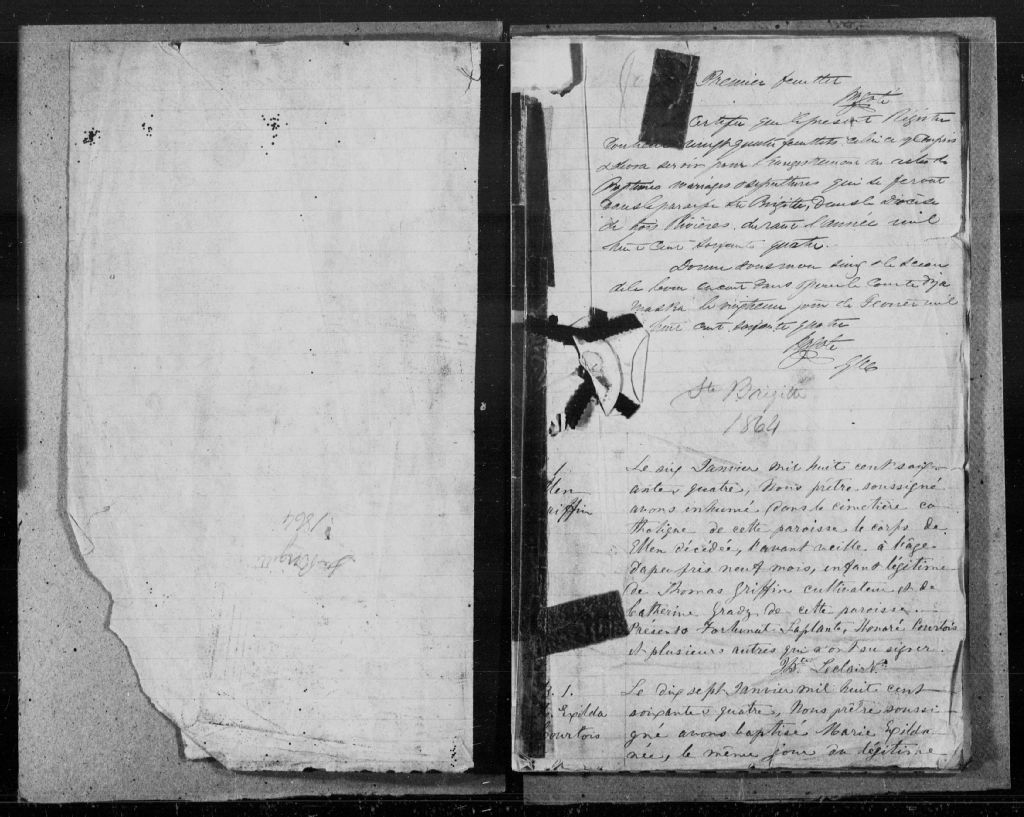 Ste Brigitte
1864
Premier feuillet
Certifie que le présent Régistre
vingt quatre feuillets celui ci y compris
devra servir pour l'enregistrement des actes de
Baptêmes mariages & sépultures qui se feront
dans la paroisse Ste Brigitte, dans le Diocèse
de trois Rivières, durant l'année mil
huit cent soixante quatre.
Donné sous mon seing & le sceau
de la cour le Comté d'Ya
maska le jour de mil
huit cent soixante quatre
Ste Brigitte
1864
llen
riffin
Le six Janvier mil huit cent soix-
ante & quatre, Nous prêtre soussigné
avons inhumé dans le cimetière ca
tholique de cette paroisse le corps de
Ellen décédée, l'avant veille à l'âge
d'apeu près neuf mois, enfant légitime
de Thomas Griffin cultivateur & de
Catherine Grady de cette paroisse.
Présents Fortunat Laplante, Honoré Courtois
et plusieurs autres qui n'ont su signer.
Leclair Ptre
B. 1.
Exilda
Courtois
Le dix sept Janvier mil huit cent
soixante & quatre, Nous prêtre soussi-
gné avons baptisé Marie Exilda
née, le même jour du légitime